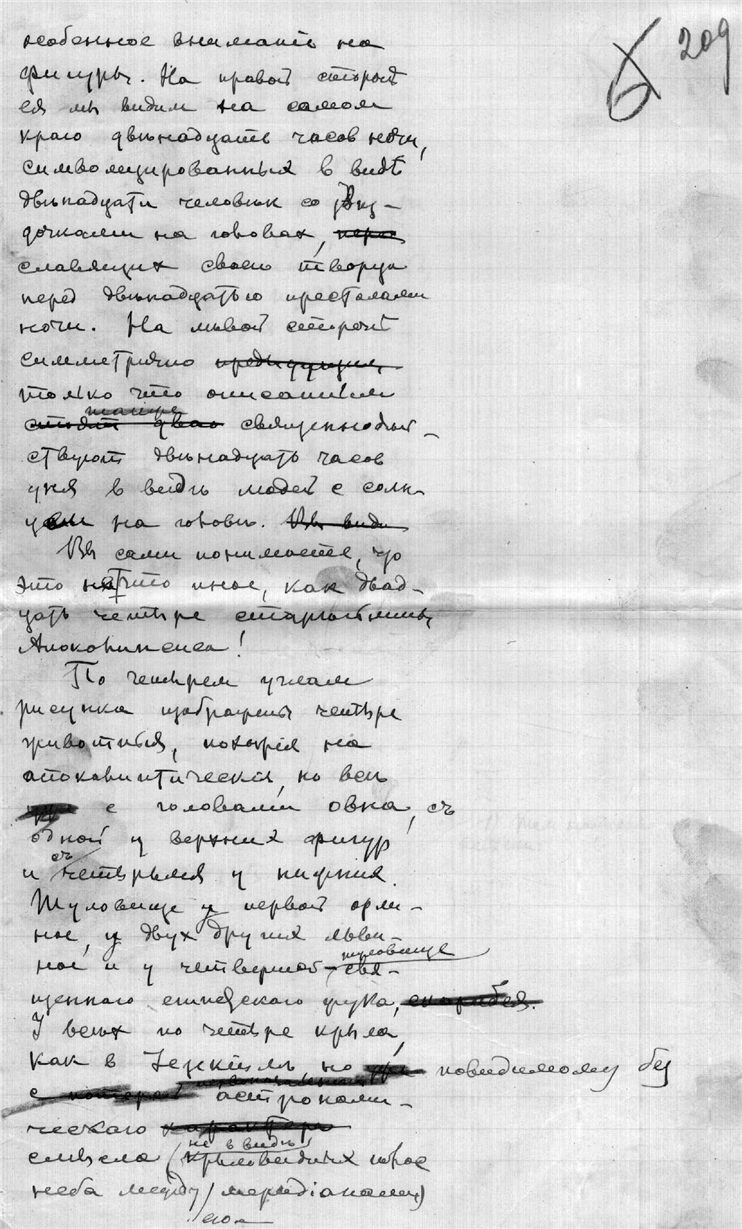 209
особенное внимание на
фигуры. На правой сторонѣ
ея мы видим на самом
краю двѣнадцать часов ночи,
символизированных в видѣ
двѣнадцати человѣк со звѣз-
дочками на головах,
славящих своего творца
перед двѣнадцатью престолами
ночи. На лѣвой сторонѣ
симметрично предидущим
только что описанным
также
стоят священнодѣй-
ствуют двѣнадцать часов
дня в видѣ людей с солн-
цем на головѣ. Вы види
Вы сами понимаете, что
это не что иное, как двад-
цать четыре старѣйшины
Апокалипсиса!
По четырем углам
рисунка изображены четыре
животныя, похожія на
апокалиптическія, но всѣ
с головами овна, съ
одной у верхних фигур
и съ четырьмя у нижних.
Туловище у первой орли-
ное, у двух других льви-
ное и у четвертой туловище свя-
щеннаго египетскаго жука, скарабея.
У всѣх по четыре крыла,
как в Іезекіилѣ но повидимому без
с которой астрономи-
ческаго характера
смысла (не в видѣ
крыловидных
неба между меридіанами)